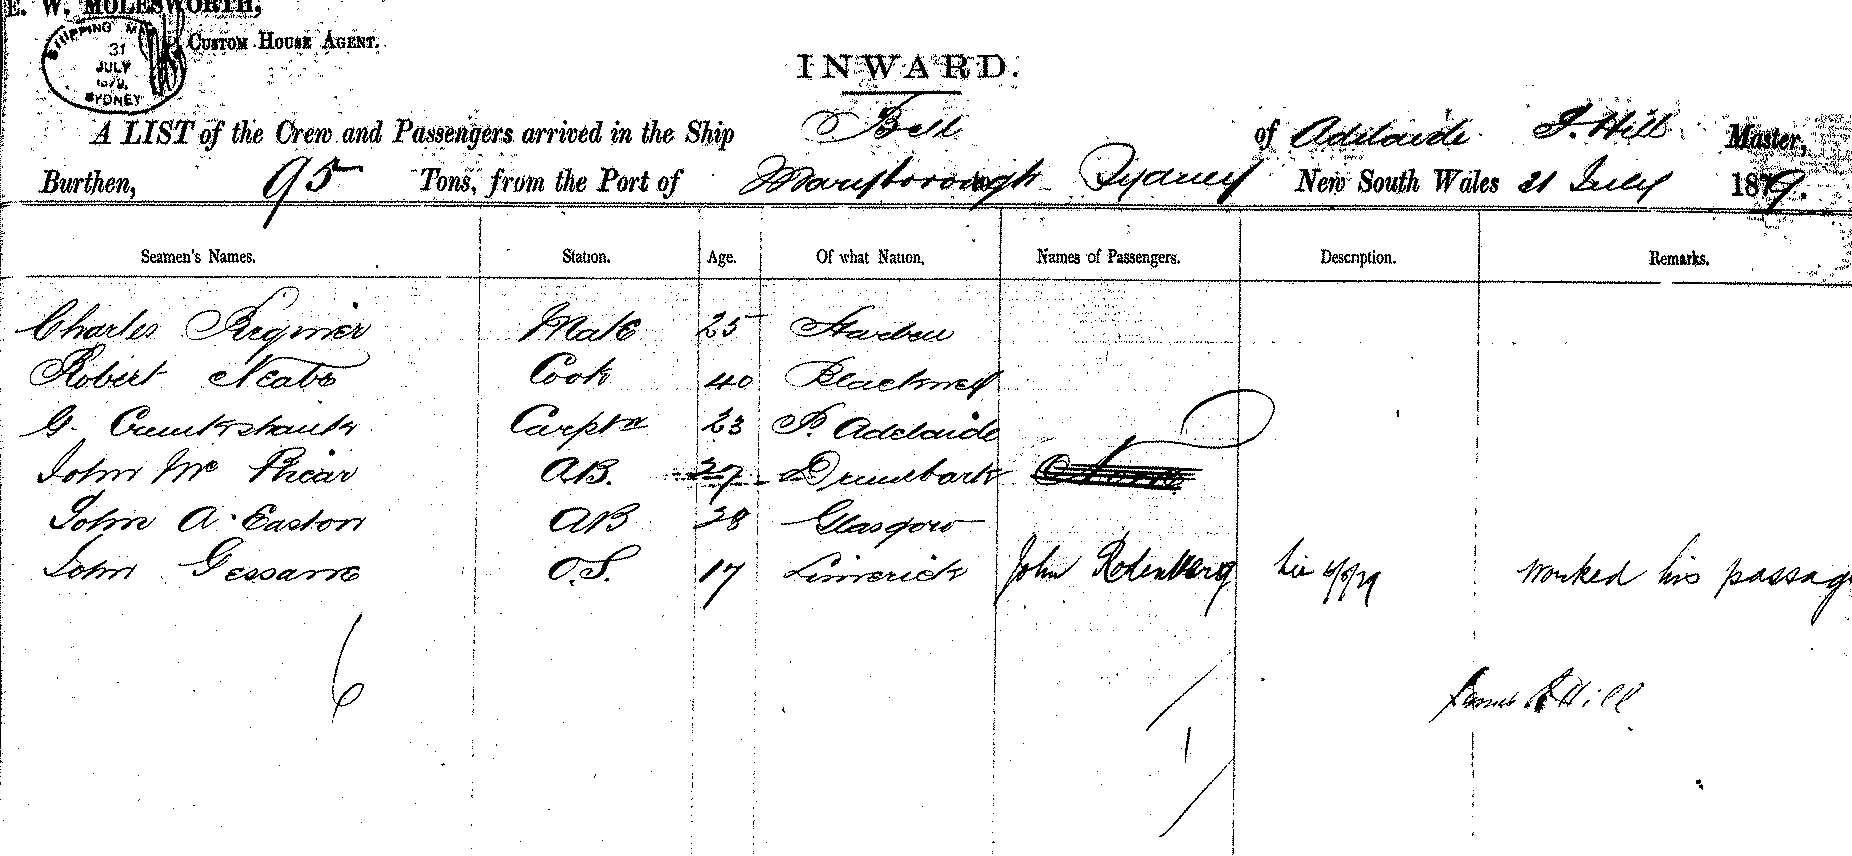 E. W. MOLESWORTH,
CUSTOM HOUSE AGENT.
SHIPPING MA
31
JULY
1879
SYDNEY
INWARD.
A LIST of the Crew and Passengers arrived in the Ship Bell of Adelaide J. Hill Master,
Burthen, 95 Tons, from the Port of Maryborough Sydney New South Wales 31 July 1879.
Seamen's Names. Station. Age. Of what Nation, Names of Passengers. Description. Remarks.
Charles Mate 25
Robert Cook 40
G. Cruickshank Carptr 23 P. Adelaide
John Mc Phiar AB. 27
John A. Easton AB 28 Glasgow
John O.S. 17 Limerick John Rodenberg worked his passag
6
James Hill
1